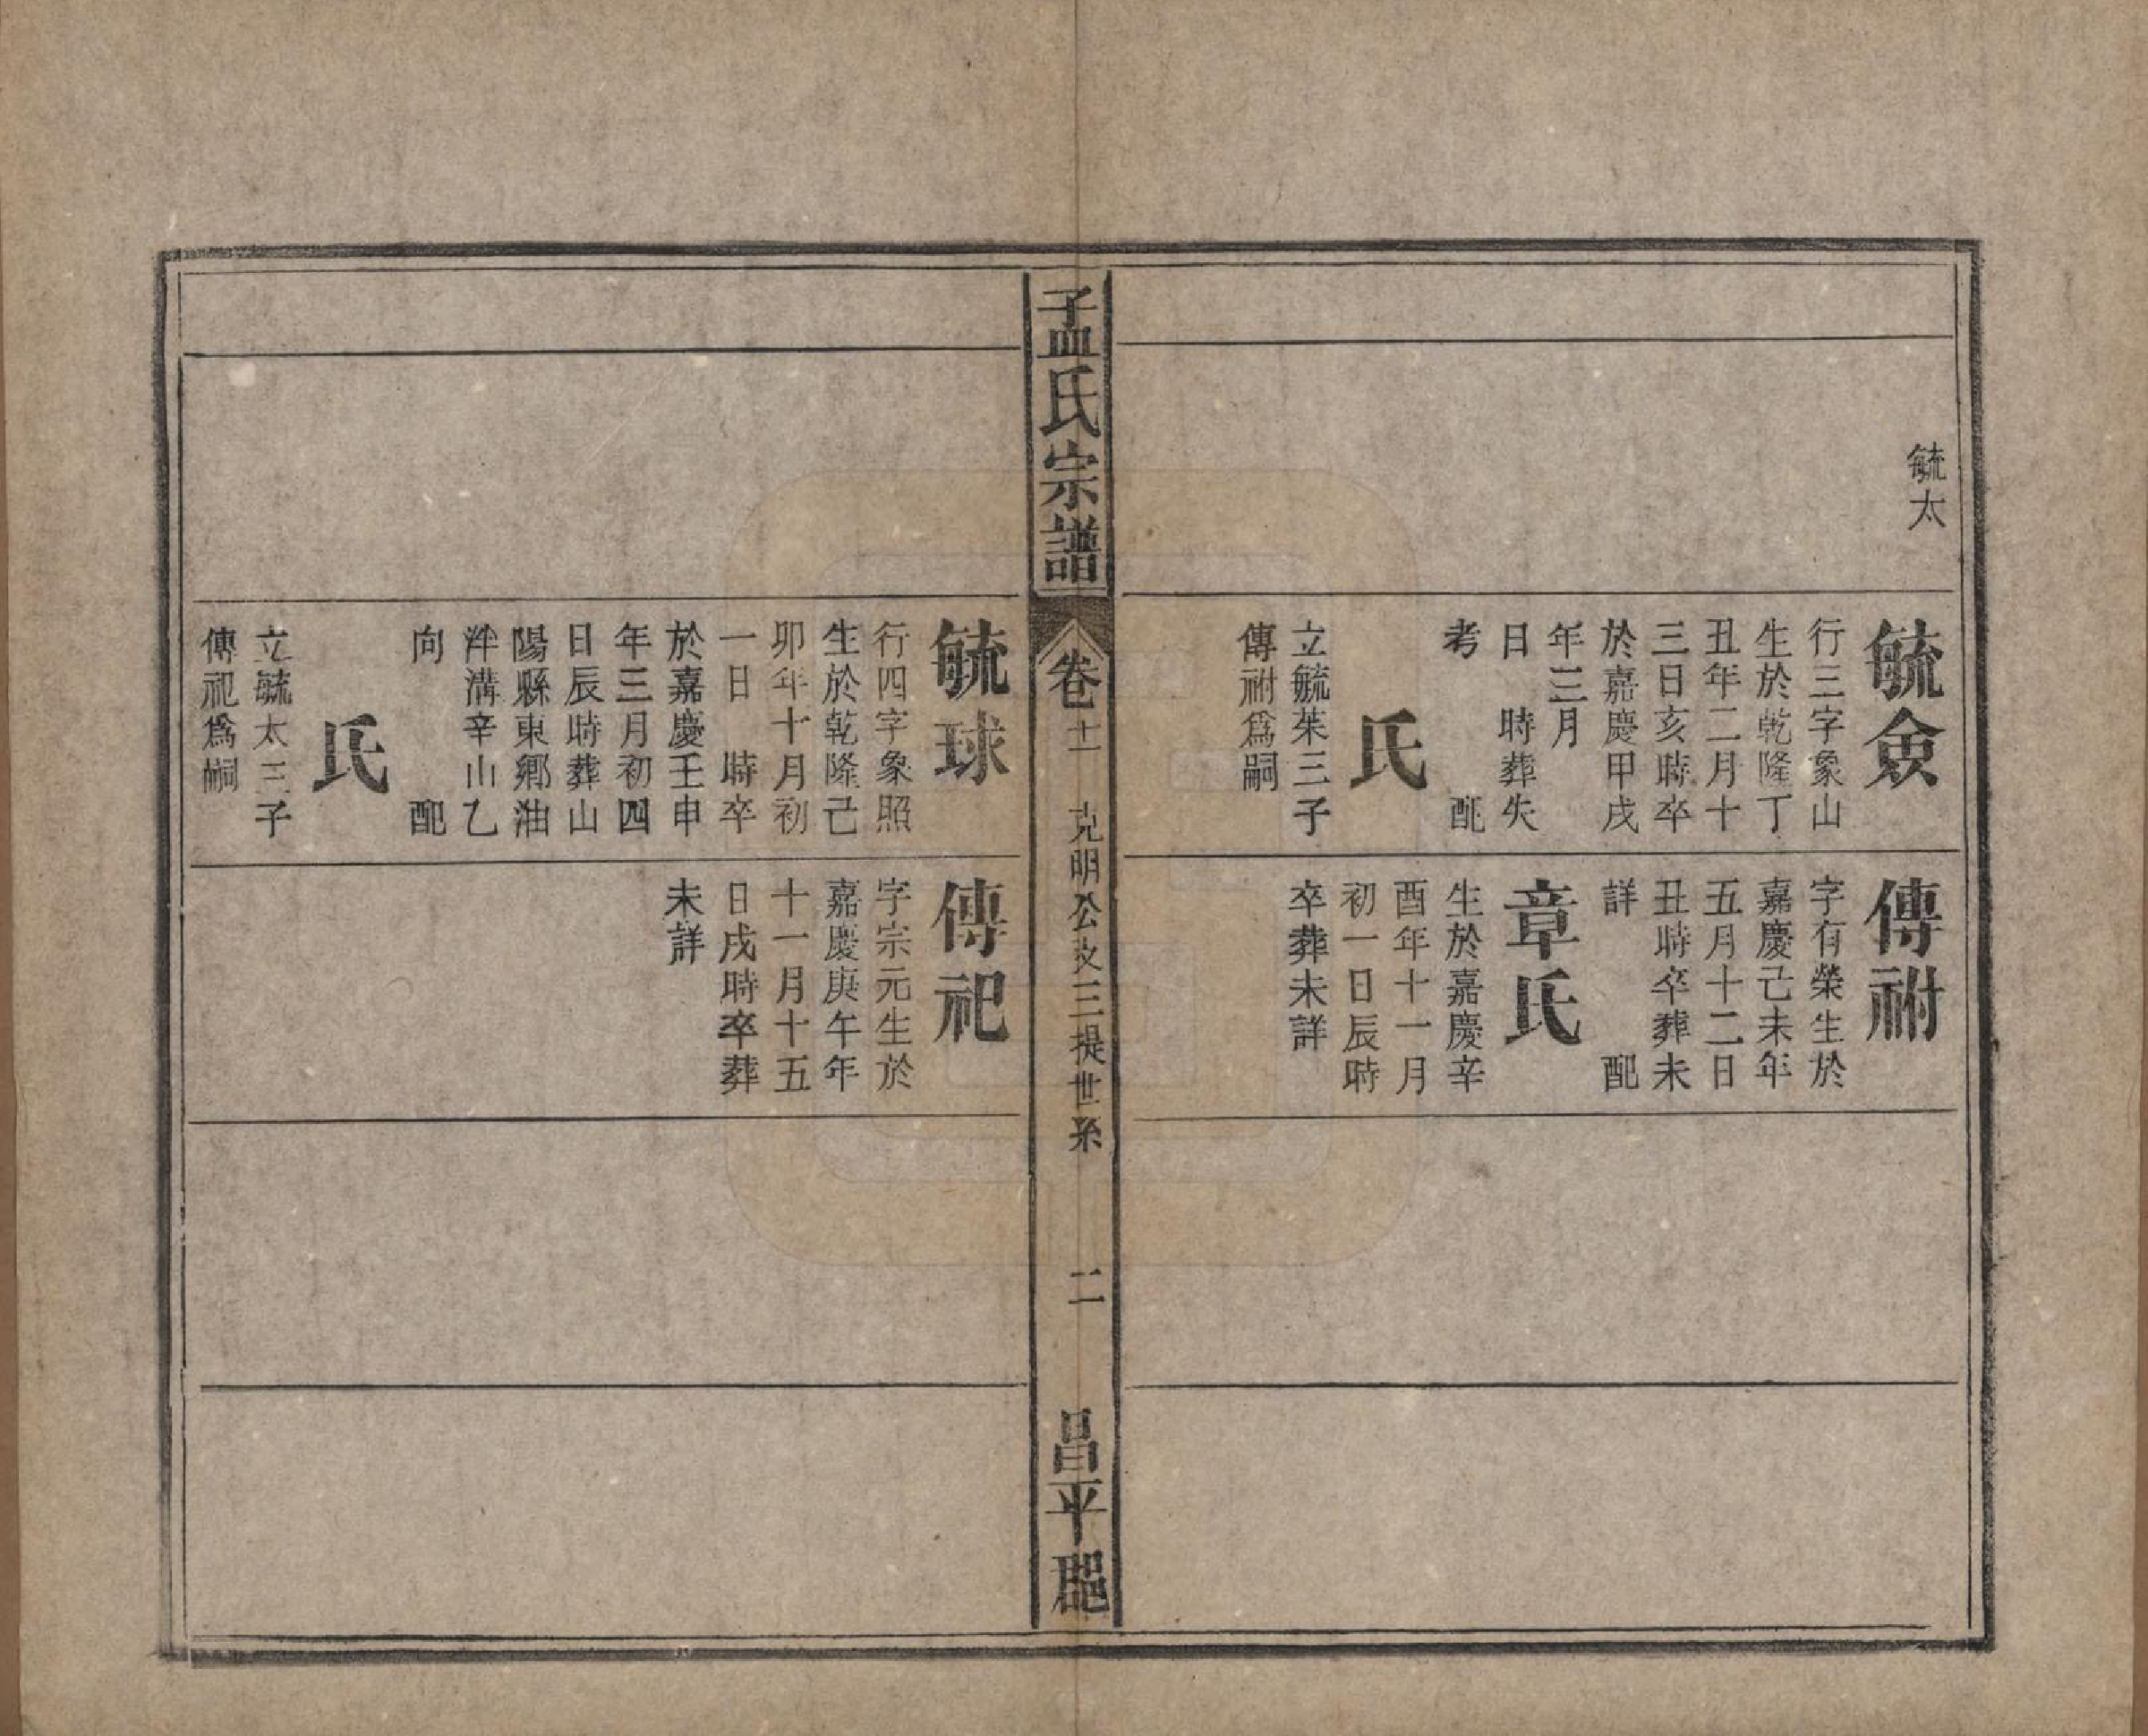 毓太
毓僉
行三字象山
生於乾隆丁
丑年二月十
三日亥時卒
於嘉慶甲戌
年三月
日　時葬失
考　　　配
氏
立毓茱三子
傳祔爲嗣
傳祔
字有榮生於
嘉慶己未年
五月十二日
丑時卒葬未
詳　　　配
章氏
生於嘉慶辛
酉年十一月
初一日辰時
卒葬未詳
孟氏宗譜
卷十一
克明公支三提世系
二
昌平郡
毓球
行四字象照
生於乾隆己
卯年十月初
一日　時卒
於嘉慶壬申
年三月初四
日辰時葬山
陽縣東鄉油
泮溝辛山乙
向　　　配
氏
立毓太三子
傳祀爲嗣
傳祀
字宗元生於
嘉慶庚午年
十一月十五
日戌時卒葬
未詳